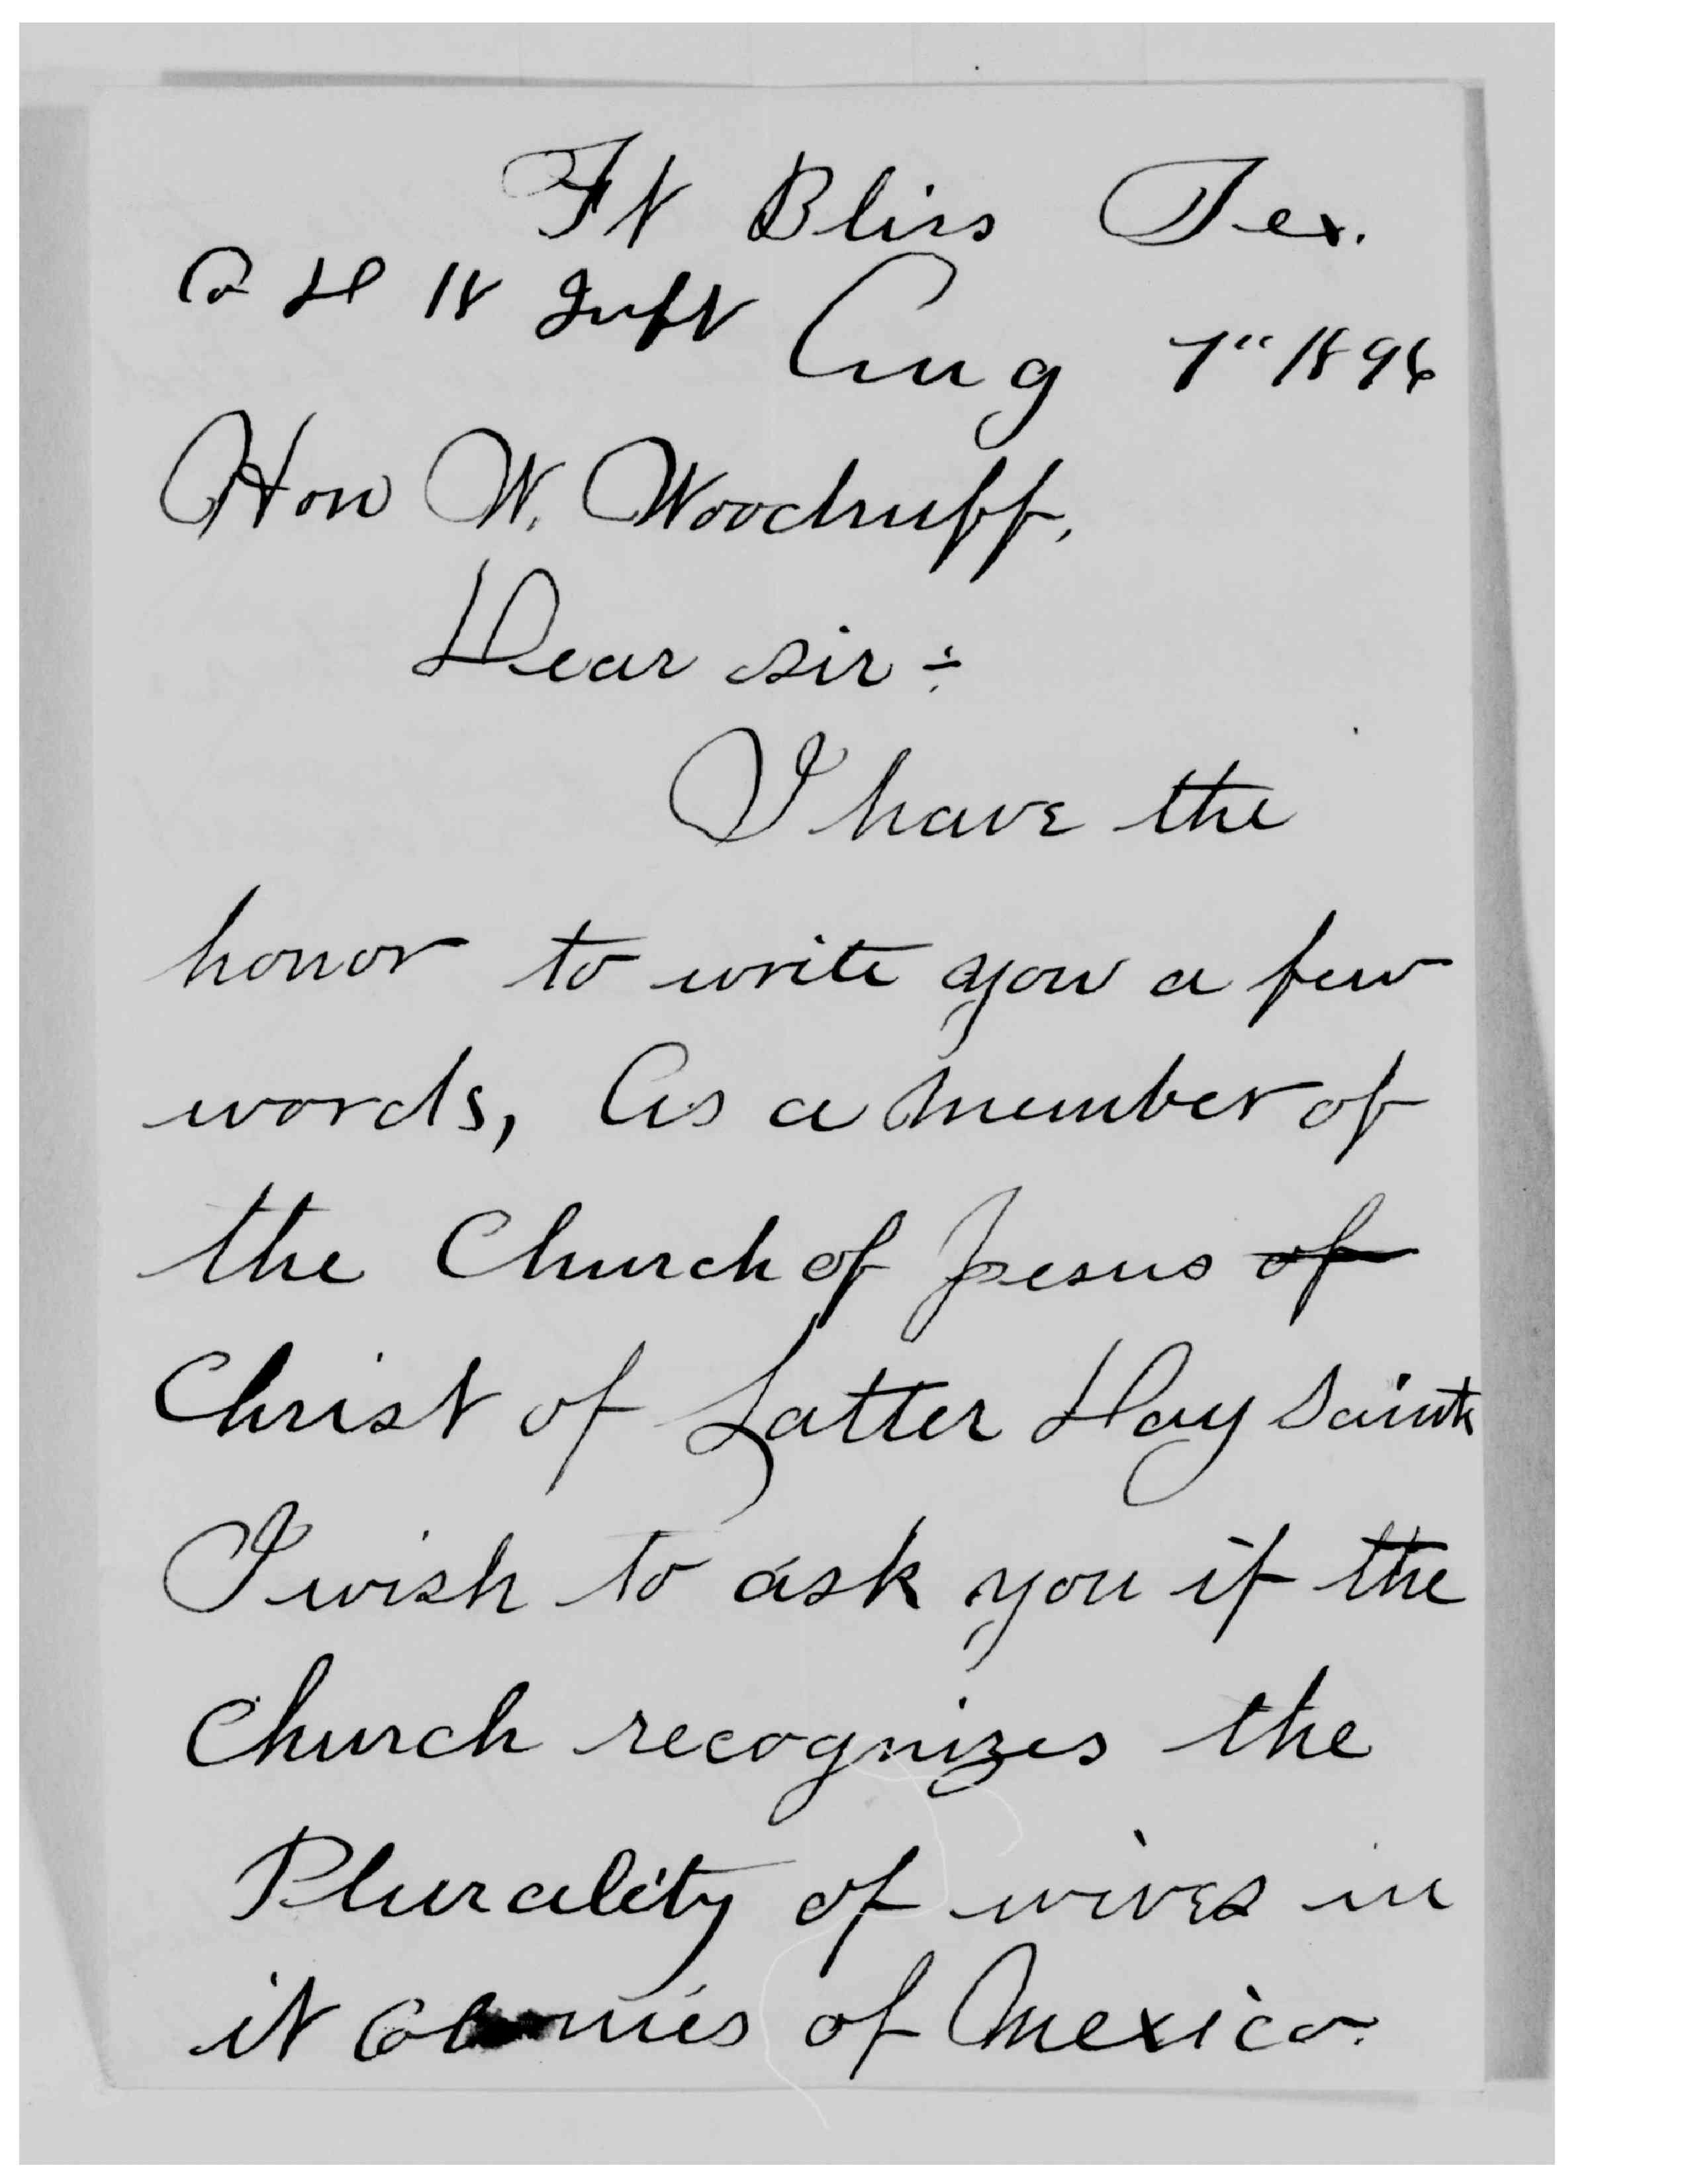 Ft Bliss Tex.
Co H 18 Inft
Aug 7" 1896
Hon W. Woodruff,
Dear sir÷
I have the
honor to write you a few
words, As a Member of
the Church of Jesus of
Christ of Latter Day Saints
I wish to ask you if the
Church recognizes the
Plurality of wives in
it Colonies of Mexico.